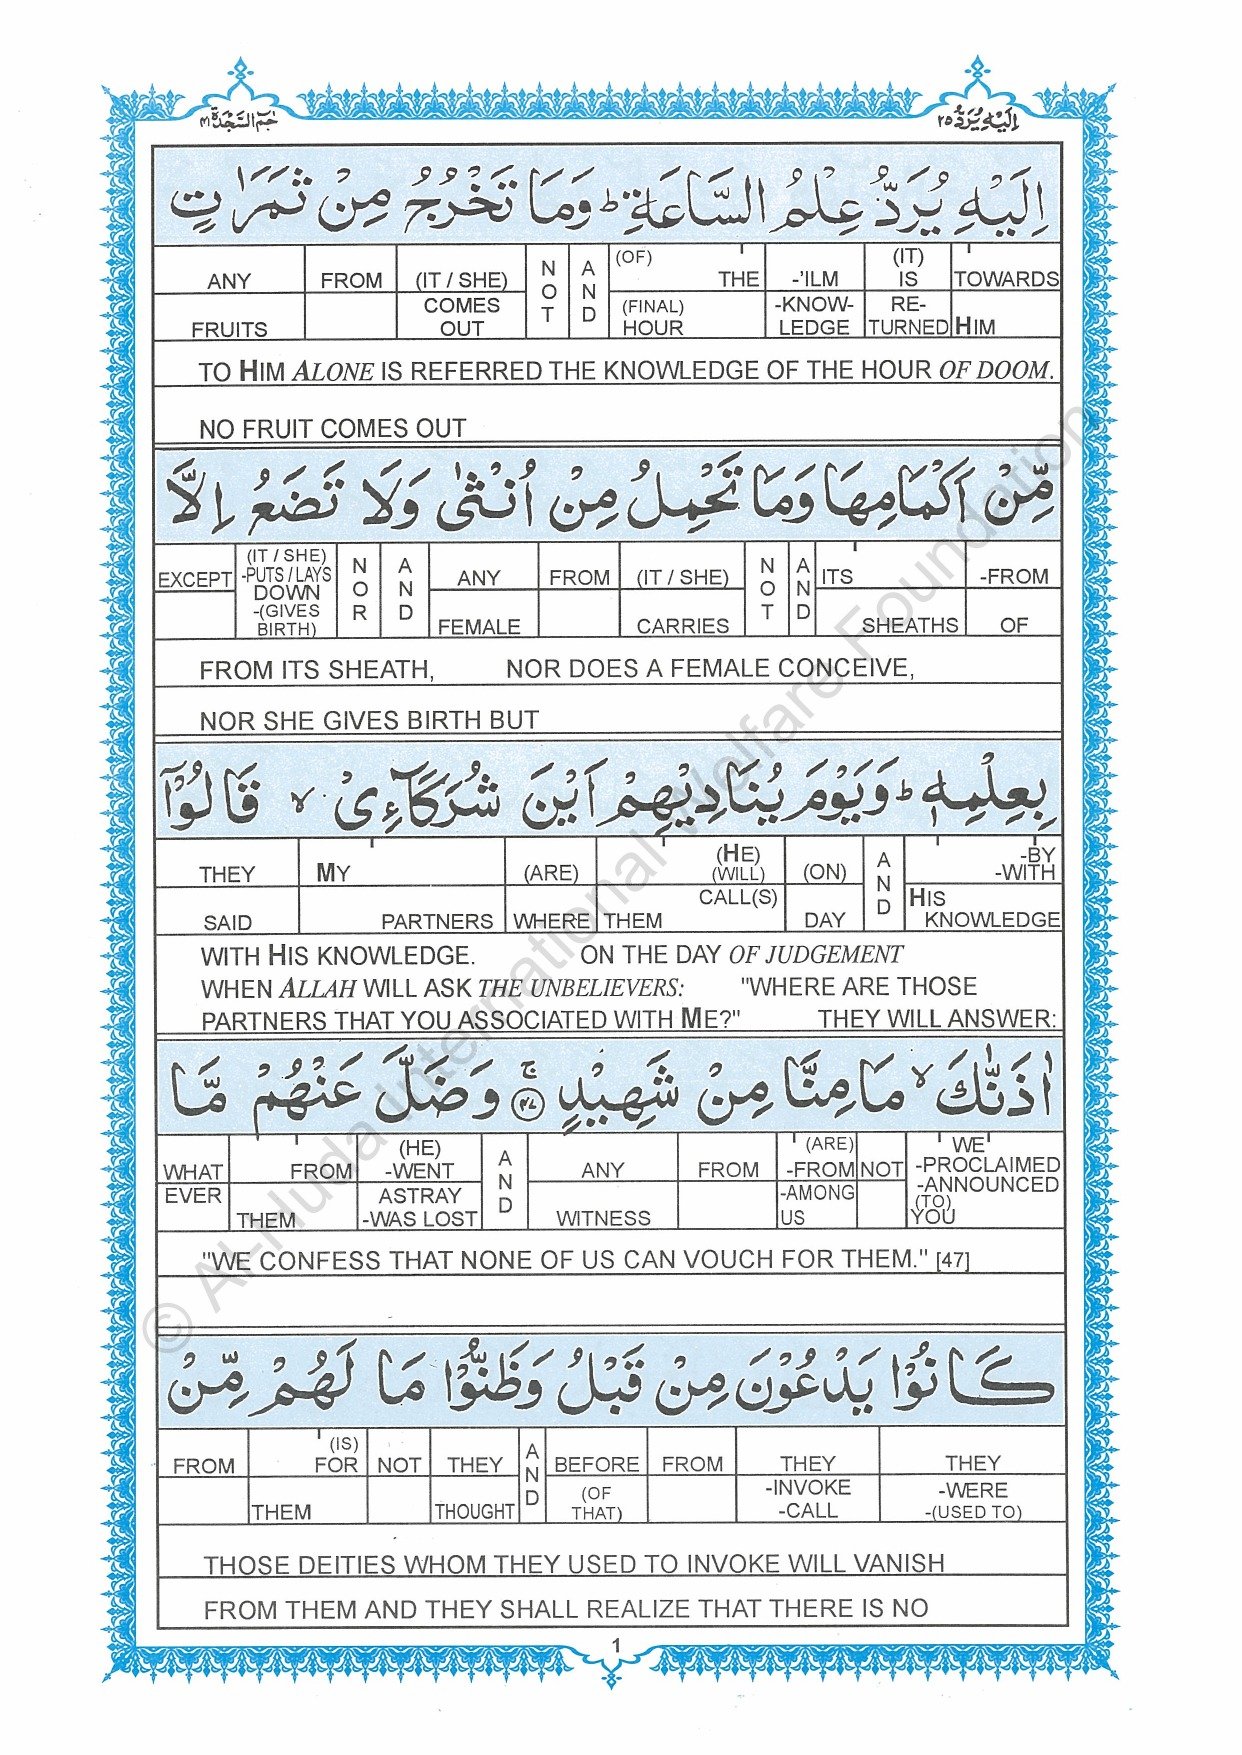 حٰمٓ السَّجْدَة ٤١ اِلَيْهِ يُرَدُّ ٢٥
اِلَيْهِ يُرَدُّ عِلْمُ السَّاعَةِ ؕ وَمَا تَخْرُجُ مِنْ ثَمَرٰتٍ
ANY FROM (IT / SHE) NOT AND (OF) THE -'ILM (IT) IS TOWARDS
FRUITS COMES OUT (FINAL) HOUR -KNOW-LEDGE RE-TURNED HIM
TO HIM ALONE IS REFERRED THE KNOWLEDGE OF THE HOUR OF DOOM.
NO FRUIT COMES OUT
مِّنْ اَكْمَامِهَا وَمَا تَحْمِلُ مِنْ اُنْثٰى وَلَا تَضَعُ اِلَّا
EXCEPT (IT / SHE) -PUTS / LAYS DOWN -(GIVES BIRTH) NOR AND ANY FROM (IT / SHE) NOT AND ITS -FROM
FEMALE CARRIES SHEATHS OF
FROM ITS SHEATH, NOR DOES A FEMALE CONCEIVE,
NOR SHE GIVES BIRTH BUT
بِعِلْمِهٖ ؕ وَيَوْمَ يُنَادِيْهِمْ اَيْنَ شُرَكَآءِيْ ۙ قَالُوْٓا
THEY MY (ARE) (HE) (WILL) (ON) AND -BY -WITH
SAID PARTNERS WHERE THEM CALL(S) DAY HIS KNOWLEDGE
WITH HIS KNOWLEDGE. ON THE DAY OF JUDGEMENT
WHEN ALLAH WILL ASK THE UNBELIEVERS: "WHERE ARE THOSE
PARTNERS THAT YOU ASSOCIATED WITH ME?" THEY WILL ANSWER:
اٰذَنّٰكَ ۙ مَا مِنَّا مِنْ شَهِيْدٍ ۚ ﴿٤٧﴾ وَضَلَّ عَنْهُمْ مَّا
WHAT FROM (HE) -WENT AND ANY FROM (ARE) -FROM NOT WE -PROCLAIMED -ANNOUNCED
EVER THEM ASTRAY -WAS LOST WITNESS -AMONG US (TO) YOU
"WE CONFESS THAT NONE OF US CAN VOUCH FOR THEM." [47]
كَانُوْا يَدْعُوْنَ مِنْ قَبْلُ وَظَنُّوْا مَا لَهُمْ مِّنْ
FROM (IS) FOR NOT THEY AND BEFORE FROM THEY THEY
THEM THOUGHT (OF THAT) -INVOKE -CALL -WERE -(USED TO)
THOSE DEITIES WHOM THEY USED TO INVOKE WILL VANISH
FROM THEM AND THEY SHALL REALIZE THAT THERE IS NO
1
© Al-Huda International Welfare Foundation